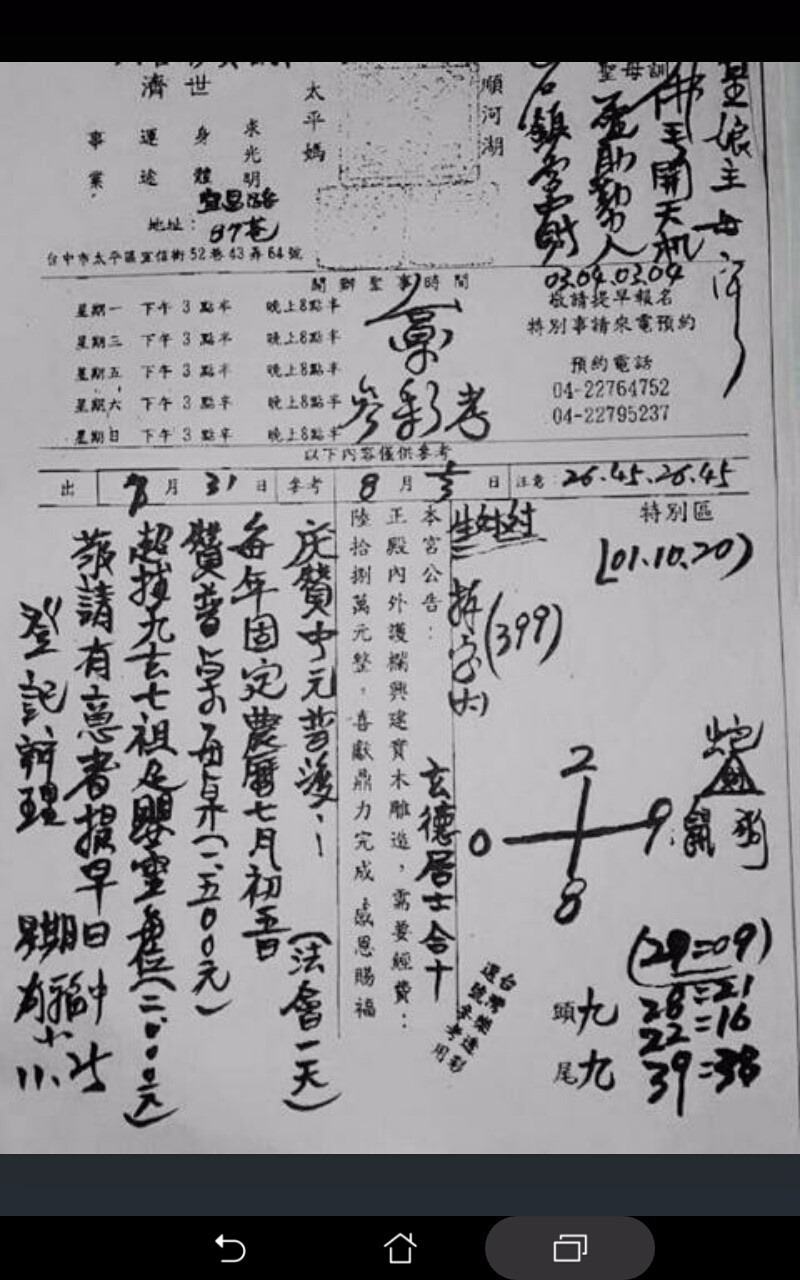 聖母訓
順河湖
太平媽
濟世
求光明
身體
運途
事業
佛手開天机
孟助勤人
鎮宮財
星娘主母
03.04.03.04
宜昌路
地址：87巷
台中市太平區宜信街52巷43弄64號
開辦聖事時間
星期一 下午3點半 晚上8點半
星期三 下午3點半 晚上8點半
星期五 下午3點半 晚上8點半
星期六 下午3點半 晚上8點半
星期日 下午3點半 晚上8點半
敬請提早報名
特別事請來電預約
預約電話
04-22764752
04-22795237
参彩考
以下內容僅供參考
出 7月31日 參考 8月 日 注意：26.45.26.45
特別區
(01.10.20)
拆字
(399)
2
0 9
8
蛇
鼠 狗
(29=09)
28=21
22=16
39=38
頭九
尾九
台灣樂透彩
選號參考用
本宮公告：
正殿內外護欄興建實木雕造，需要經費：
陸拾捌萬元整，喜獻鼎力完成 感恩賜福
玄德居士合十
庆贊中元普渡：(法會一天)
每年固定農曆七月初五日
贊普桌每桌(一.五00元)
超拔九玄七祖及嬰靈每位(二.000元)
敬請有意者提早日
登記辦理
11.25